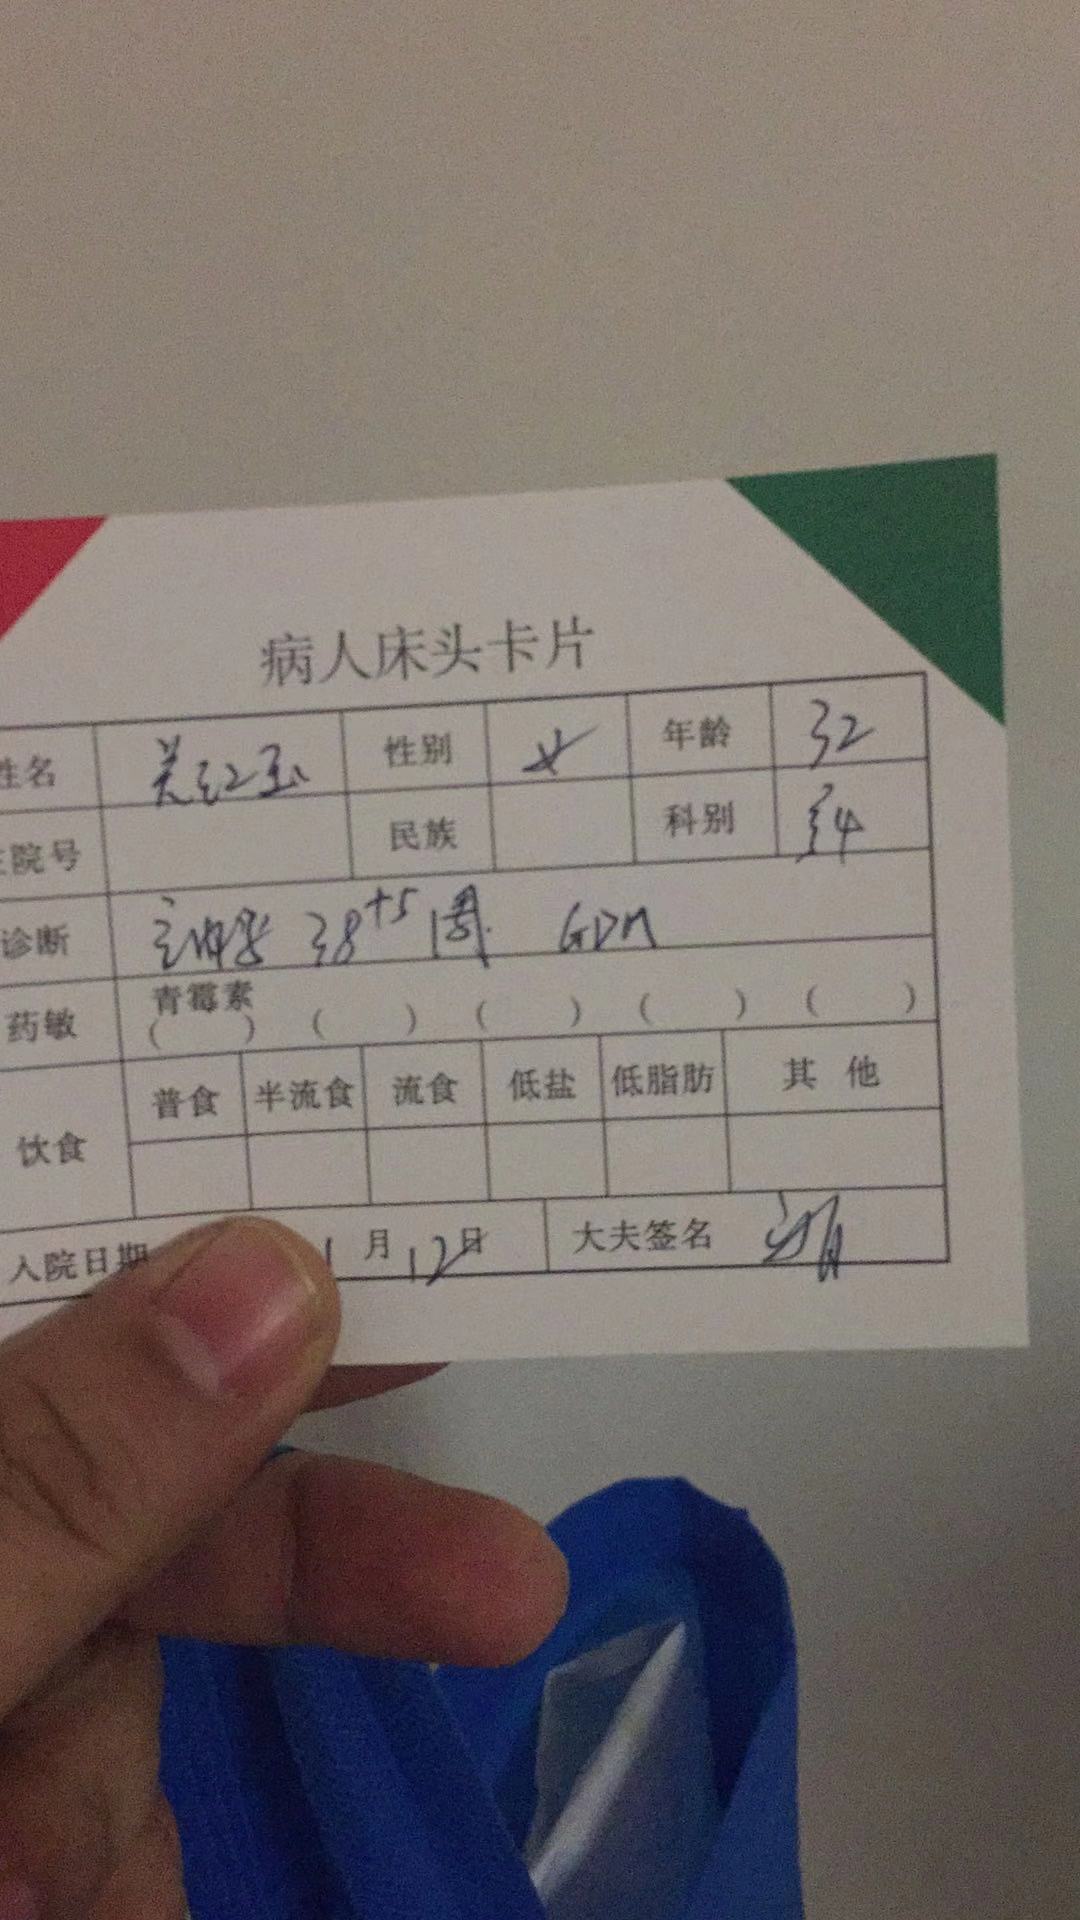 病人床头卡片
姓名 关红玉 性别 女 年龄 32
住院号 民族 科别
诊断 38+5周 GDM
药敏 青霉素( ) ( ) ( ) ( ) ( )
饮食 普食 半流食 流食 低盐 低脂肪 其他
入院日期 1月12日 大夫签名